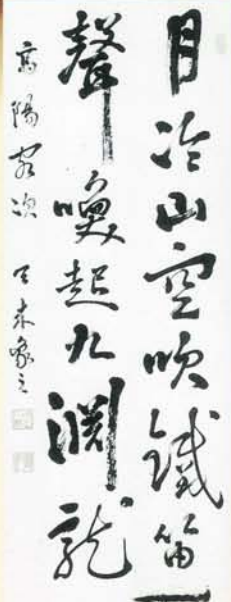 月冷山空吹鐵笛一
聲喚起九淵龍
高陽客次 天未象之